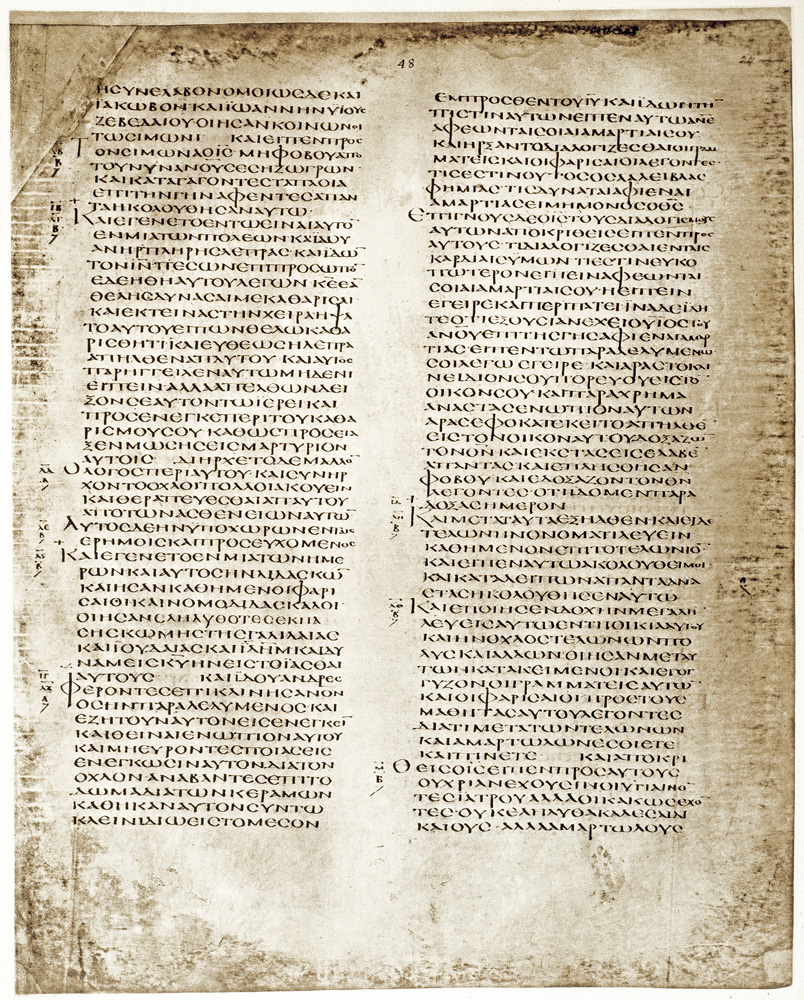 48
ΗϹΥΝΕΛΑΒΟΝΟΜΟΙΩϹΔΕΚΑΙ
ΪΑΚΩΒΟΝΚΑΙΪΩΑΝΝΗΝΥΪΟΥϹ
ΖΕΒΕΔΑΙΟΥΟΙΗϹΑΝΚΟΙΝΩΝΟΙ
ΤΩϹΙΜΩΝΙ ΚΑΙΕΙΠΕΝΠΡΟϹ
ΤΟΝϹΙΜΩΝΑΟΙϹ ΜΗΦΟΒΟΥΑΠΟ
ΤΟΥΝΥΝΑΝΟΥϹΕϹΗΖΩΓΡΩΝ
ΚΑΙΚΑΤΑΓΑΓΟΝΤΕϹΤΑΠΛΟΙΑ
ΕΠΙΤΗΝΓΗΝΑΦΕΝΤΕϹΑΠΑΝ
ΤΑΗΚΟΛΟΥΘΗϹΑΝΑΥΤΩ
ΚΑΙΕΓΕΝΕΤΟΕΝΤΩΕΙΝΑΙΑΥΤΟ
ΕΝΜΙΑΤΩΝΠΟΛΕΩΝΚΑΙΪΔΟΥ
ΑΝΗΡΠΛΗΡΗϹΛΕΠΡΑϹ ΚΑΙΪΔΩ
ΤΟΝΙΝΠΕϹΩΝΕΠΙΠΡΟϹΩΠΟ
ΕΔΕΗΘΗΑΥΤΟΥΛΕΓΩΝ ΚΕΕΑ
ΘΕΛΗϹΔΥΝΑϹΑΙΜΕΚΑΘΑΡΙϹΑΙ
ΚΑΙΕΚΤΕΙΝΑϹΤΗΝΧΕΙΡΑΗΨΑ
ΤΟΑΥΤΟΥΕΙΠΩΝΘΕΛΩΚΑΘΑ
ΡΙϹΘΗΤΙΚΑΙΕΥΘΕΩϹΗΛΕΠΡΑ
ΑΠΗΛΘΕΝΑΠΑΥΤΟΥ ΚΑΙΑΥΤΟϹ
ΠΑΡΗΓΓΕΙΛΕΝΑΥΤΩΜΗΔΕΝΙ
ΕΙΠΕΙΝ·ΑΛΛΑΑΠΕΛΘΩΝΔΕΙ
ΞΟΝϹΕΑΥΤΟΝΤΩΪΕΡΕΙΚΑΙ
ΠΡΟϹΕΝΕΓΚΕΠΕΡΙΤΟΥΚΑΘΑ
ΡΙϹΜΟΥϹΟΥ ΚΑΘΩϹΠΡΟϹΕΤΑ
ΞΕΝΜΩϹΗϹΕΙϹΜΑΡΤΥΡΙΟΝ
ΑΥΤΟΙϹ ΔΙΗΡΧΕΤΟΔΕΜΑΛΛΟ
ΟΛΟΓΟϹΠΕΡΙΑΥΤΟΥ ΚΑΙϹΥΝΗΡ
ΧΟΝΤΟΟΧΛΟΙΠΟΛΛΟΙΑΚΟΥΕΙΝ
ΚΑΙΘΕΡΑΠΕΥΕϹΘΑΙΑΠΑΥΤΟΥ
ΑΠΟΤΩΝΑϹΘΕΝΕΙΩΝΑΥΤΩ
ΑΥΤΟϹΔΕΗΝΥΠΟΧΩΡΩΝΕΝΤΑΙϹ
ΕΡΗΜΟΙϹΚΑΙΠΡΟϹΕΥΧΟΜΕΝΟϹ
ΚΑΙΕΓΕΝΕΤΟΕΝΜΙΑΤΩΝΗΜΕ
ΡΩΝΚΑΙΑΥΤΟϹΗΝΔΙΔΑϹΚΩ
ΚΑΙΗϹΑΝΚΑΘΗΜΕΝΟΙΦΑΡΙ
ϹΑΙΟΙΚΑΙΝΟΜΟΔΙΔΑϹΚΑΛΟΙ
ΟΙΗϹΑΝϹΥΝΕΛΗΛΥΘΟΤΕϹΕΚΠΑ
ϹΗϹΚΩΜΗϹΤΗϹΓΑΛΙΛΑΙΑϹ
ΚΑΙΪΟΥΔΑΙΑϹΚΑΙΪΛΗΜΚΑΙΔΥ
ΝΑΜΕΙϹΚΥΗΝΕΙϹΤΟΪΑϹΘΑΙ
ΑΥΤΟΥϹ ΚΑΙΪΔΟΥΑΝΔΡΕϹ
ΦΕΡΟΝΤΕϹΕΠΙΚΛΙΝΗϹΑΝΟΝ
ΟϹΗΝΠΑΡΑΛΕΛΥΜΕΝΟϹΚΑΙ
ΕΖΗΤΟΥΝΑΥΤΟΝΕΙϹΕΝΕΓΚΕΙ
ΚΑΙΘΕΙΝΑΙΕΝΩΠΙΟΝΑΥΤΟΥ
ΚΑΙΜΗΕΥΡΟΝΤΕϹΠΟΙΑϹΕΙϹ
ΕΝΕΓΚΩϹΙΝΑΥΤΟΝΔΙΑΤΟΝ
ΟΧΛΟΝ·ΑΝΑΒΑΝΤΕϹΕΠΙΤΟ
ΔΩΜΑΔΙΑΤΩΝΚΕΡΑΜΩΝ
ΚΑΘΗΚΑΝΑΥΤΟΝϹΥΝΤΩ
ΚΛΕΙΝΙΔΙΩΕΙϹΤΟΜΕϹΟΝ
ΕΜΠΡΟϹΘΕΝΤΟΥΙΥ ΚΑΙΪΔΩΝΤΗ
ΠΙϹΤΙΝΑΥΤΩΝΕΙΠΕΝΑΥΤΩΑΝΕ
ΑΦΕΩΝΤΑΙϹΟΙΑΙΑΜΑΡΤΙΑΙϹΟΥ
ΚΑΙΗΡΞΑΝΤΟΔΙΑΛΟΓΙΖΕϹΘΑΙΟΙΓΡΑΜ
ΜΑΤΕΙϹΚΑΙΟΙΦΑΡΙϹΑΙΟΙΛΕΓΟΝΤΕϹ
ΤΙϹΕϹΤΙΝΟΥΤΟϹΟϹΛΑΛΕΙΒΛΑϹ
ΦΗΜΙΑϹΤΙϹΔΥΝΑΤΑΙΑΦΙΕΝΑΙ
ΑΜΑΡΤΙΑϹΕΙΜΗΜΟΝΟϹΟΘϹ
ΕΠΙΓΝΟΥϹΔΕΟΙϹΤΟΥϹΔΙΑΛΟΓΙϹΜΟΥϹ
ΑΥΤΩΝΑΠΟΚΡΙΘΕΙϹΕΙΠΕΝΠΡΟϹ
ΑΥΤΟΥϹ ΤΙΔΙΑΛΟΓΙΖΕϹΘΑΙΕΝΤΑΙϹ
ΚΑΡΔΙΑΙϹΥΜΩΝ ΤΙΕϹΤΙΝΕΥΚΟ
ΠΩΤΕΡΟΝΕΙΠΕΙΝΑΦΕΩΝΤΑΙ
ϹΟΙΑΙΑΜΑΡΤΙΑΙϹΟΥΗΕΙΠΕΙΝ
ΕΓΕΙΡΕΚΑΙΠΕΡΙΠΑΤΕΙΪΝΑΔΕΪΔΗ
ΤΕΟΤΙΕΞΟΥϹΙΑΝΕΧΕΙΟΥΪΟϹΤΟΥ
ΑΝΟΥΕΠΙΤΗϹΓΗϹΑΦΙΕΝΑΙΑΜΑΡ
ΤΙΑϹΕΙΠΕΝΤΩΠΑΡΑΛΕΛΥΜΕΝΩ
ϹΟΙΛΕΓΩ ΕΓΕΙΡΕ ΚΑΙΑΡΑϹΤΟΚΛΙ
ΝΕΙΔΙΟΝϹΟΥΠΟΡΕΥΟΥΕΙϹΤΟ
ΟΙΚΟΝϹΟΥ ΚΑΙΠΑΡΑΧΡΗΜΑ
ΑΝΑϹΤΑϹΕΝΩΠΙΟΝΑΥΤΩΝ
ΑΡΑϹΕΦΟΚΑΤΕΚΕΙΤΟΑΠΗΛΘΕ
ΕΙϹΤΟΝΟΙΚΟΝΑΥΤΟΥΔΟΞΑΖΩ
ΤΟΝΘΝ ΚΑΙΕΚϹΤΑϹΙϹΕΛΑΒΕ
ΑΠΑΝΤΑϹ ΚΑΙΕΠΛΗϹΘΗϹΑΝ
ΦΟΒΟΥ ΚΑΙΕΔΟΞΑΖΟΝΤΟΝΘΝ
ΛΕΓΟΝΤΕϹ·ΟΤΙΪΔΟΜΕΝΠΑΡΑ
ΔΟΞΑϹΗΜΕΡΟΝ
ΚΑΙΜΕΤΑΤΑΥΤΑΕΞΗΛΘΕΝΚΑΙΕΘΕΑϹΑ
ΤΕΛΩΝΗΝΟΝΟΜΑΤΙΛΕΥΕΙΝ
ΚΑΘΗΜΕΝΟΝΕΠΙΤΟΤΕΛΩΝΙΟ
ΚΑΙΕΙΠΕΝΑΥΤΩΑΚΟΛΟΥΘΕΙΜΟΙ
ΚΑΙΚΑΤΑΛΕΙΠΩΝΑΠΑΝΤΑΑΝΑ
ϹΤΑϹΗΚΟΛΟΥΘΗϹΕΝΑΥΤΩ
ΚΑΙΕΠΟΙΗϹΕΝΔΟΧΗΝΜΕΓΑΛΗ
ΛΕΥΕΙϹΑΥΤΩΕΝΤΗΟΙΚΙΑΑΥΤΟΥ
ΚΑΙΗΝΟΧΛΟϹΤΕΛΩΝΩΝΠΟ
ΛΥϹΚΑΙΑΛΛΩΝ·ΟΙΗϹΑΝΜΕΤΑΥ
ΤΩΝΚΑΤΑΚΕΙΜΕΝΟΙ ΚΑΙΕΓΟΓ
ΓΥΖΟΝΟΙΓΡΑΜΜΑΤΕΙϹΑΥΤΩ
ΚΑΙΟΙΦΑΡΙϹΑΙΟΙΠΡΟϹΤΟΥϹ
ΜΑΘΗΤΑϹΑΥΤΟΥΛΕΓΟΝΤΕϹ
ΔΙΑΤΙΜΕΤΑΤΩΝΤΕΛΩΝΩΝ
ΚΑΙΑΜΑΡΤΩΛΩΝΕϹΘΙΕΤΕ
ΚΑΙΠΙΝΕΤΕ ΚΑΙΑΠΟΚΡΙ
ΘΕΙϹΟΙϹΕΙΠΕΝΠΡΟϹΑΥΤΟΥϹ
ΟΥΧΡΙΑΝΕΧΟΥϹΙΝΟΙΥΓΙΑΙΝΟ
ΤΕϹΪΑΤΡΟΥΑΛΛΑΟΙΚΑΚΩϹΕΧΟ
ΤΕϹ·ΟΥΚΕΛΗΛΥΘΑΚΑΛΕϹΑΙΔΙ
ΚΑΙΟΥϹ·ΑΛΛΑΑΜΑΡΤΩΛΟΥϹ